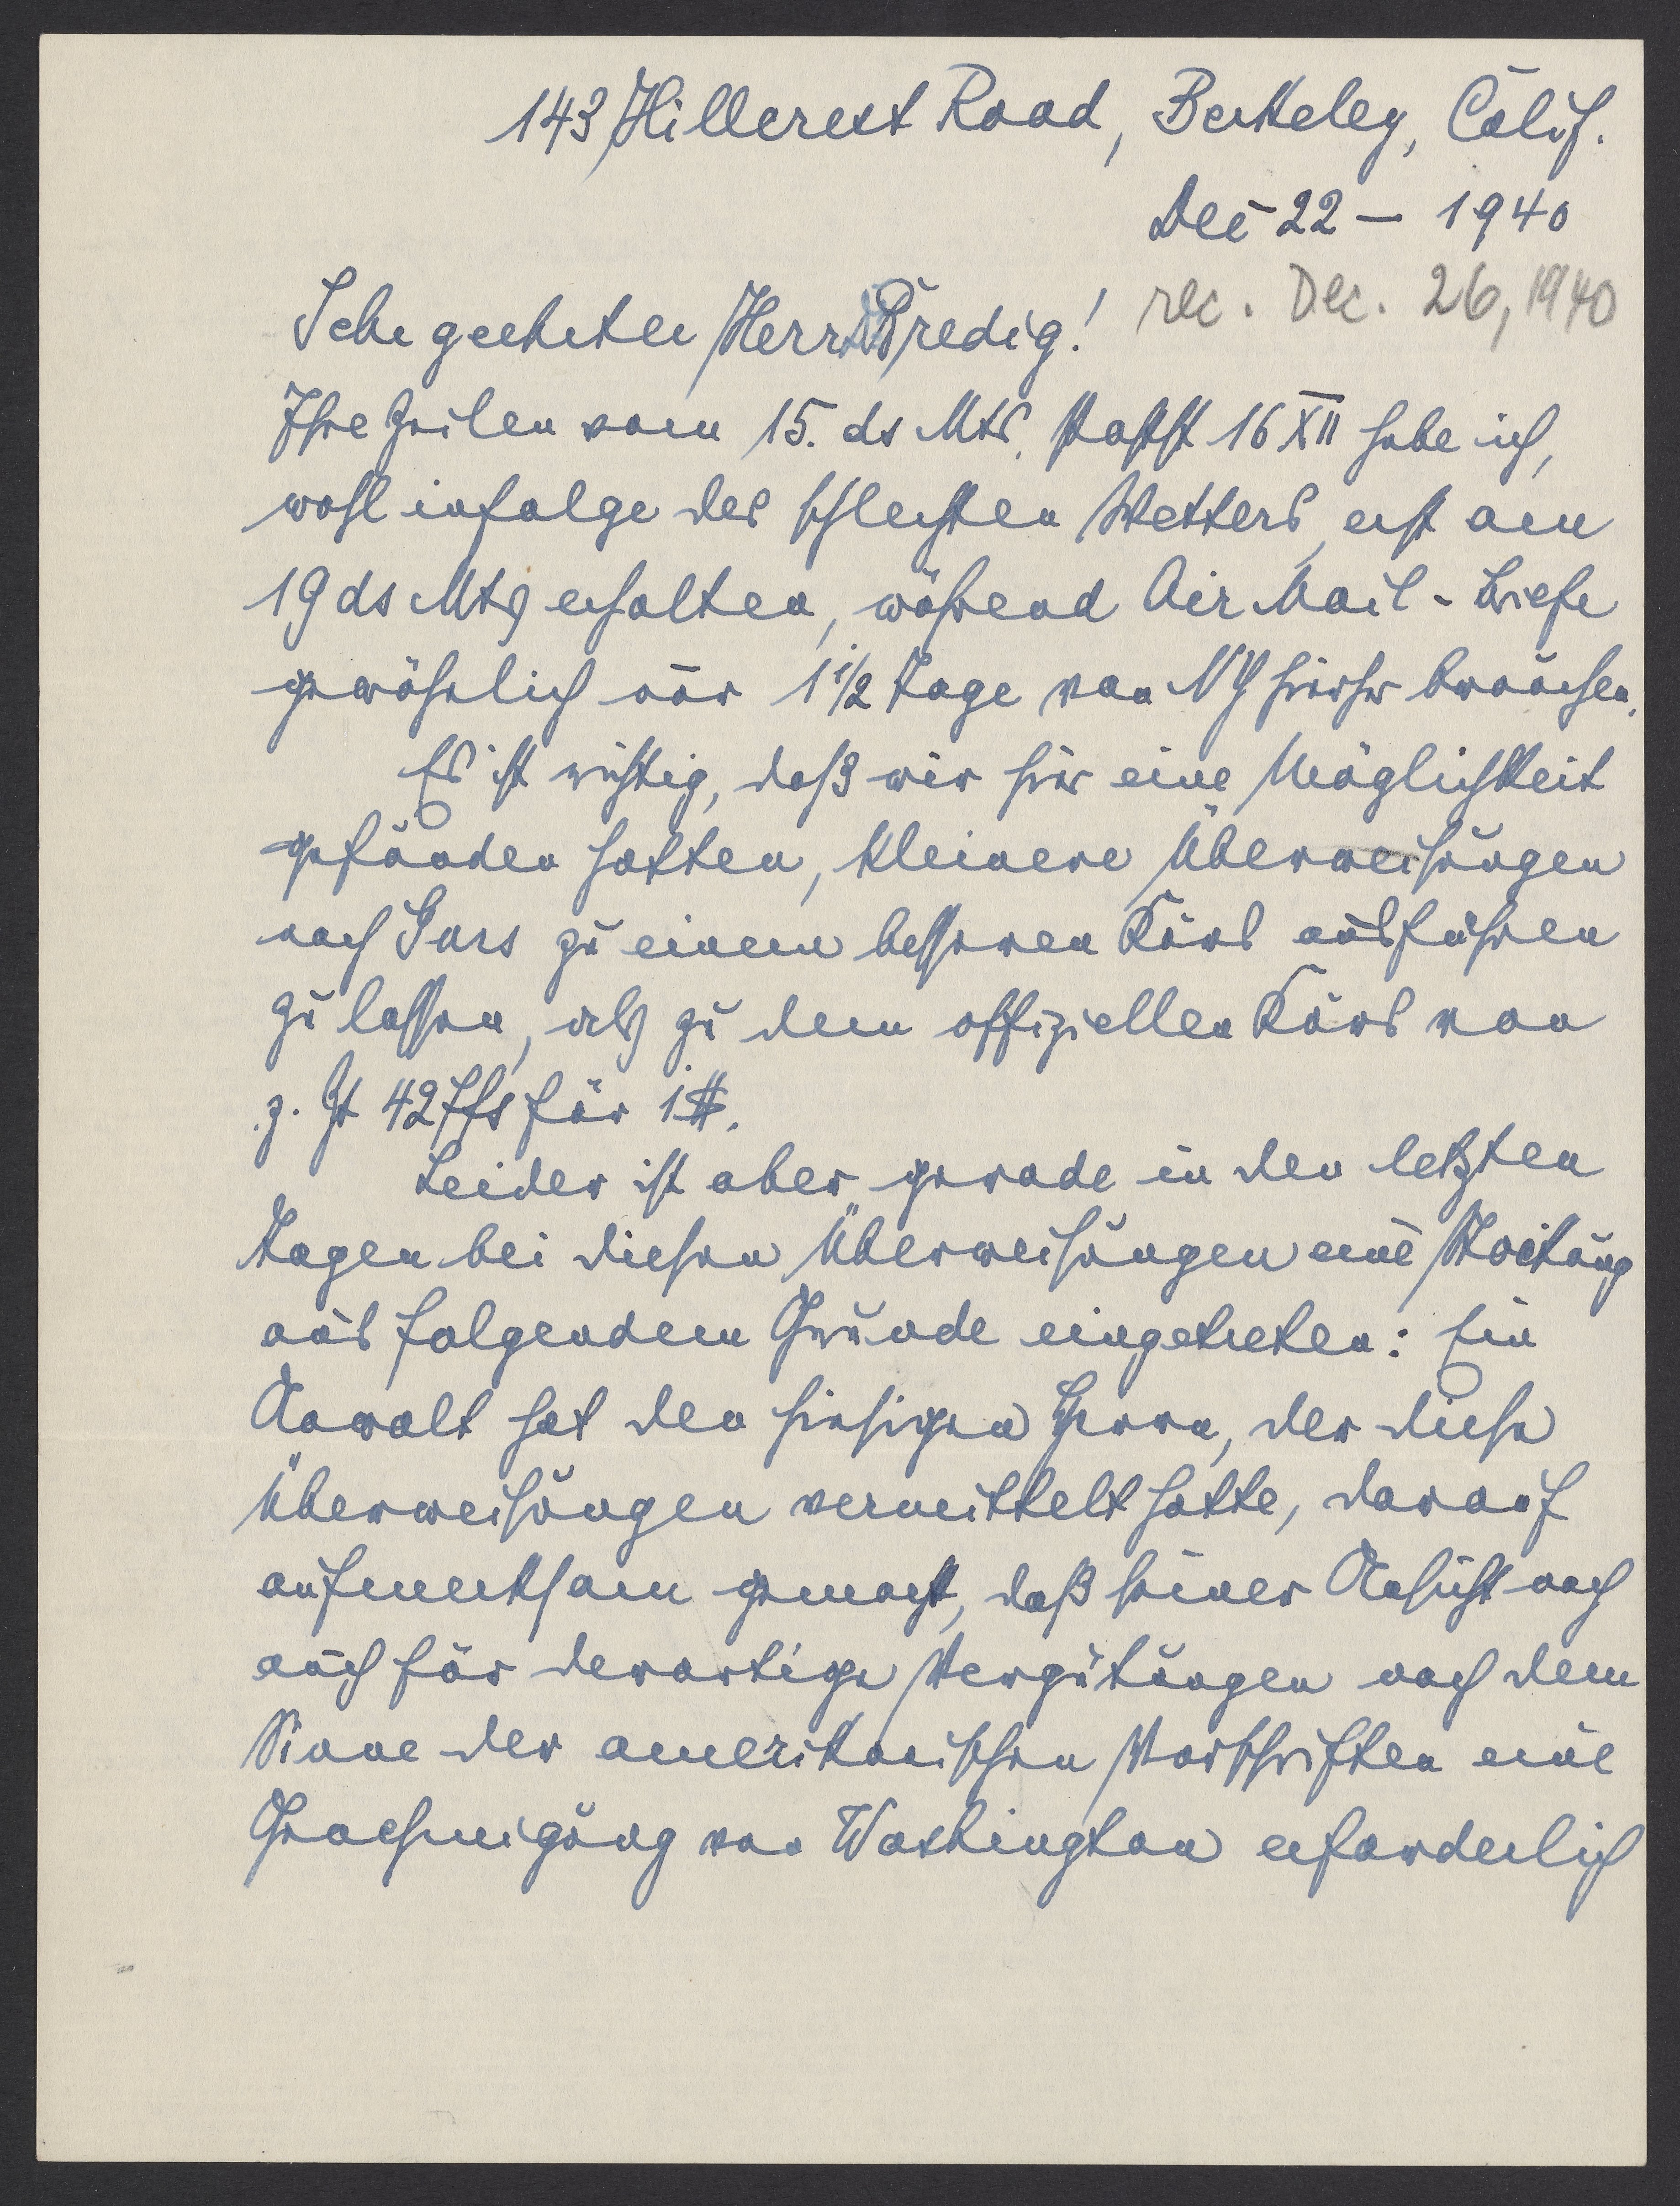 143 Hillcrest Road, Berkeley, Calif.
Dec 22 – 1940
rec. Dec. 26, 1940
Sehr geehrter Herr Dr Bredig!
Ihre Zeilen vom 15. ds Mts, 16 XII habe ich,
wohl infolge des schlechten Wetters, erst am
19 ds Mts erhalten, während Air Mail - Briefe
gewöhnlich nur 1 1/2 Tage von NY hierher brauchen.
Es ist richtig, daß wir hier eine Möglichkeit
gefunden hatten, kleinere Überweisungen
nach Gurs zu einem besseren Kurs ausführen
zu lassen, als zu dem offiziellen Kurs von
z. Zt 42 ffs für 1 $.
Leider ist aber gerade in den letzten
Tagen bei diesen Überweisungen eine Stockung
aus folgendem Grunde eingetreten: Ein
Anwalt hat den hiesigen Herrn, der diese
Überweisungen vermittelt hatte, darauf
aufmerksam gemacht, daß seiner Ansicht nach
auch für derartige Vergütungen nach dem
Sinne der amerikanischen Vorschriften eine
Genehmigung von Washington erforderlich